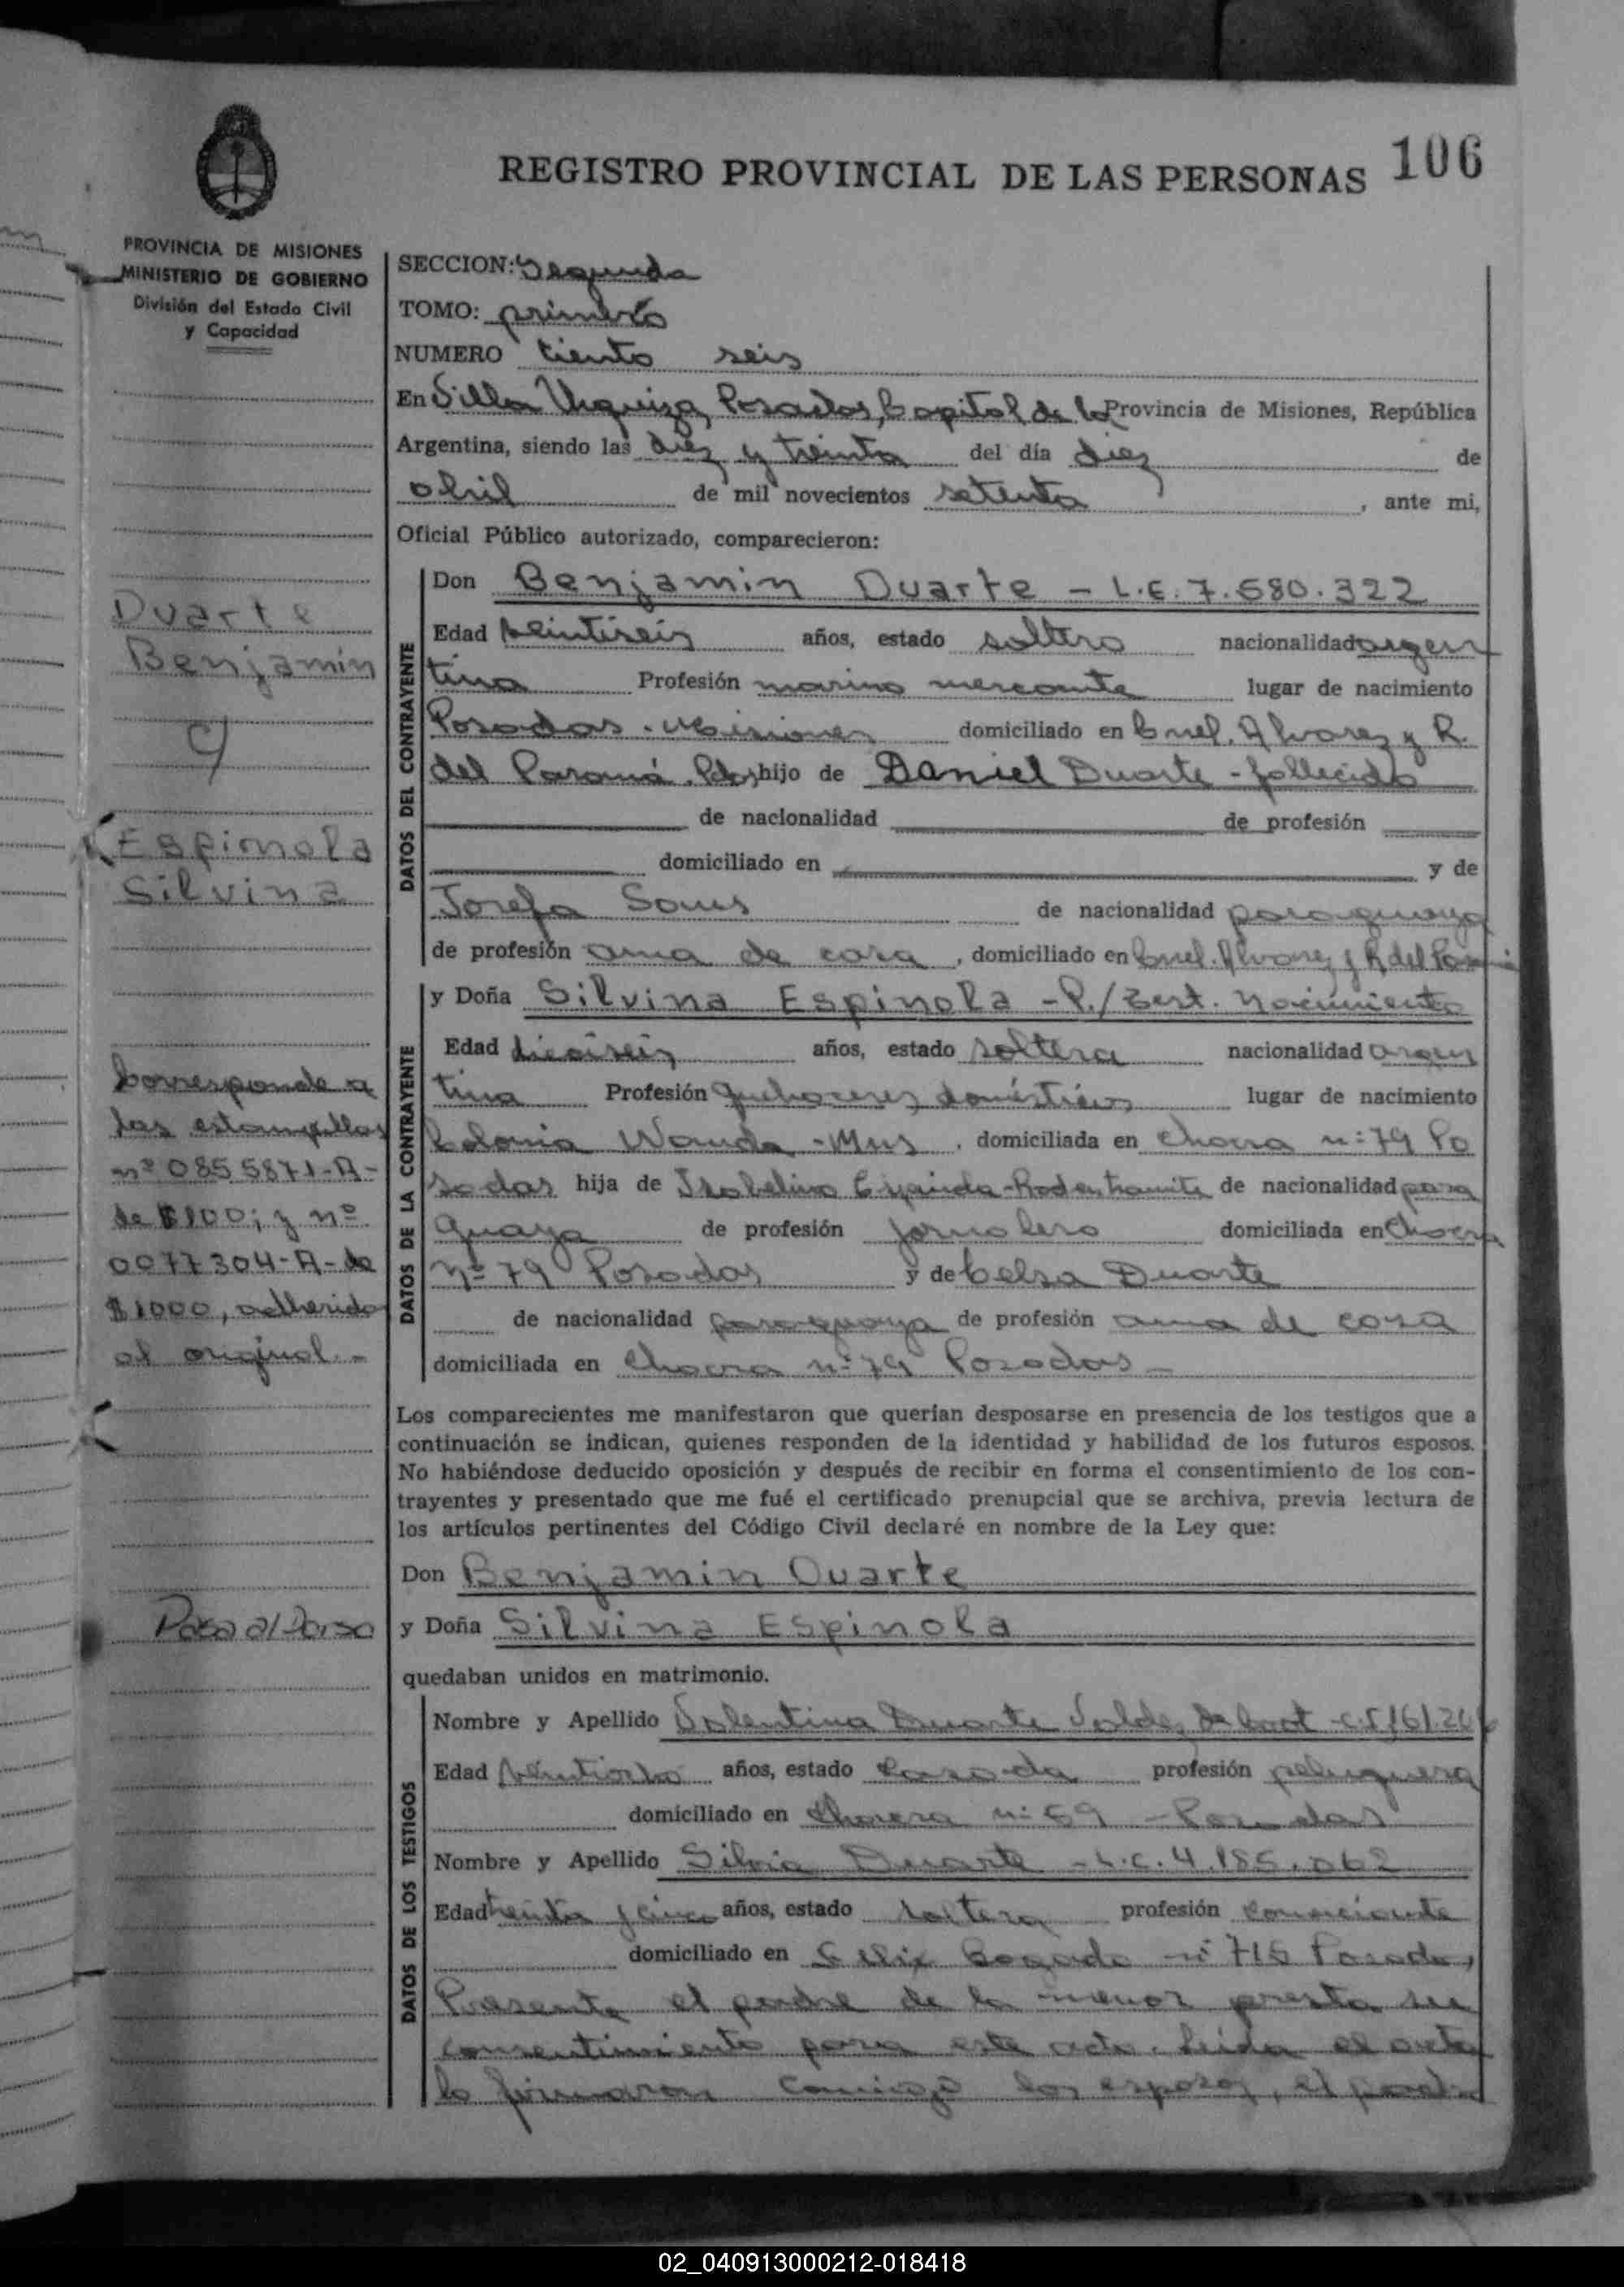 106
REGISTRO PROVINCIAL DE LAS PERSONAS
PROVINCIA DE MISIONES
MINISTERIO DE GOBIERNO
División del Estado Civil
y Capacidad
SECCION: Segunda
TOMO: primero
NUMERO ciento seis
En Villa Urquiza, Posadas, Capital de la Provincia de Misiones, República
Argentina, siendo las diez y treinta del día diez de
abril de mil novecientos setenta, ante mi,
Oficial Público autorizado, comparecieron:
Duarte
Benjamin
c/
Espinola
Silvina
DATOS DEL CONTRAYENTE
Don Benjamin Duarte - L.E. 7.680.322
Edad veintiseis años, estado soltero nacionalidad argen
tina Profesión marino mercante lugar de nacimiento
Posadas - Misiones domiciliado en Cnel. Alvarez y R.
del Paraná. Pdas hijo de Daniel Duarte - fallecido
de nacionalidad de profesión
domiciliado en y de
Josefa de nacionalidad paraguaya
de profesión ama de casa, domiciliado en Cnel. Alvarez y R. del Paraná
DATOS DE LA CONTRAYENTE
y Doña Silvina Espinola - P./Cert. Nacimiento
Edad dieciseis años, estado soltera nacionalidad argen
tina Profesión quehaceres domésticos lugar de nacimiento
Colonia Wanda - Mnes, domiciliada en chacra n: 79 Po
sadas hija de Isabelino de nacionalidad para
guaya de profesión jornalero domiciliada en Chacra
nº 79 Posadas y de Celsa Duarte
de nacionalidad paraguaya de profesión ama de casa
domiciliada en chacra n: 79 Posadas -
Corresponde a
las estampillas
nº 0855871-A-
de $100; y nº
0077304-A- de
$1000, adherido
al original -
Los comparecientes me manifestaron que querían desposarse en presencia de los testigos que a
continuación se indican, quienes responden de la identidad y habilidad de los futuros esposos.
No habiéndose deducido oposición y después de recibir en forma el consentimiento de los con-
trayentes y presentado que me fué el certificado prenupcial que se archiva, previa lectura de
los artículos pertinentes del Código Civil declaré en nombre de la Ley que:
Don Benjamin Duarte
y Doña Silvina Espinola
quedaban unidos en matrimonio.
Pasa al Dorso
DATOS DE LOS TESTIGOS
Nombre y Apellido Valentina Duarte Valdez de
Edad veintiocho años, estado casada profesión peluquera
domiciliado en Chacra n: 69 - Posadas
Nombre y Apellido Silvia Duarte - L.C. 4.185.062
Edad treinta y cinco años, estado soltera profesión comerciante
domiciliado en Felix Bogado nº 715 Posadas,
Presente el padre de la menor presta su
consentimiento para este acto. Leida el acta
la firmaron conmigo los esposos, el padre
02_040913000212-018418